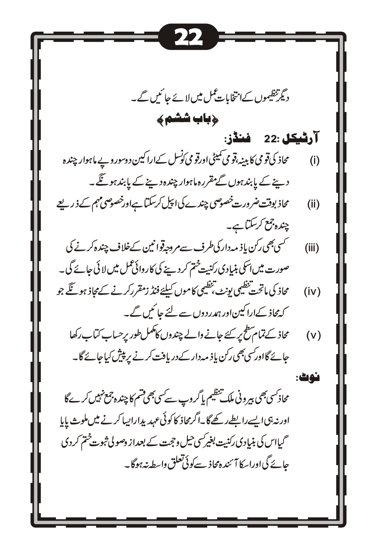 22
دیگر تنظیموں کے انتخابات عمل میں لائے جائیں گے۔
﴿باب ششم﴾
آرٹیکل 22: فنڈز:
(i) محاذ کی قومی کابینہ، قومی کمیٹی اور قومی کونسل کے اراکین دو سو روپے ماہوار چندہ
دینے کے پابند ہوں گے مقررہ ماہوار چندہ دینے کے پابند ہونگے۔
(ii) محاذ بوقت ضرورت خصوصی چندے کی اپیل کرسکتا ہے اور خصوصی مہم کے ذریعے
چندہ جمع کرسکتا ہے۔
(iii) کسی بھی رکن یا ذمہ دار کی طرف سے مروجہ قوانین کے خلاف چندہ کرنے کی
صورت میں اسکی بنیادی رکنیت ختم کردینے کی کاروائی عمل میں لائی جائے گی۔
(iv) محاذ کی ماتحت تنظیمی یونٹ، تنظیمی کاموں کیلئے فنڈز مقرر کرنے کے مجاز ہونگے جو
کہ محاذ کے اراکین اور ہمدردوں سے لئے جائیں گے۔
(v) محاذ کے تمام سطح پر کئے جانے والے چندوں کا مکمل طور پر حساب کتاب رکھا
جائے گا اور کسی بھی رکن یا ذمہ دار کے دریافت کرنے پر پیش کیا جائے گا۔
نوٹ:
محاذ کسی بھی بیرونی ملک تنظیم یا گروپ سے کسی بھی قسم کا چندہ جمع نہیں کرے گا
اور نہ ہی ایسے رابطے رکھے گا۔ اگر محاذ کا کوئی عہدیدار ایسا کرنے میں ملوث پایا
گیا اس کی بنیادی رکنیت بغیر کسی حیل و حجت کے بعد از وصولی ثبوت ختم کردی
جائے گی اور اسکا آئندہ محاذ سے کوئی تعلق واسطہ نہ ہوگا۔